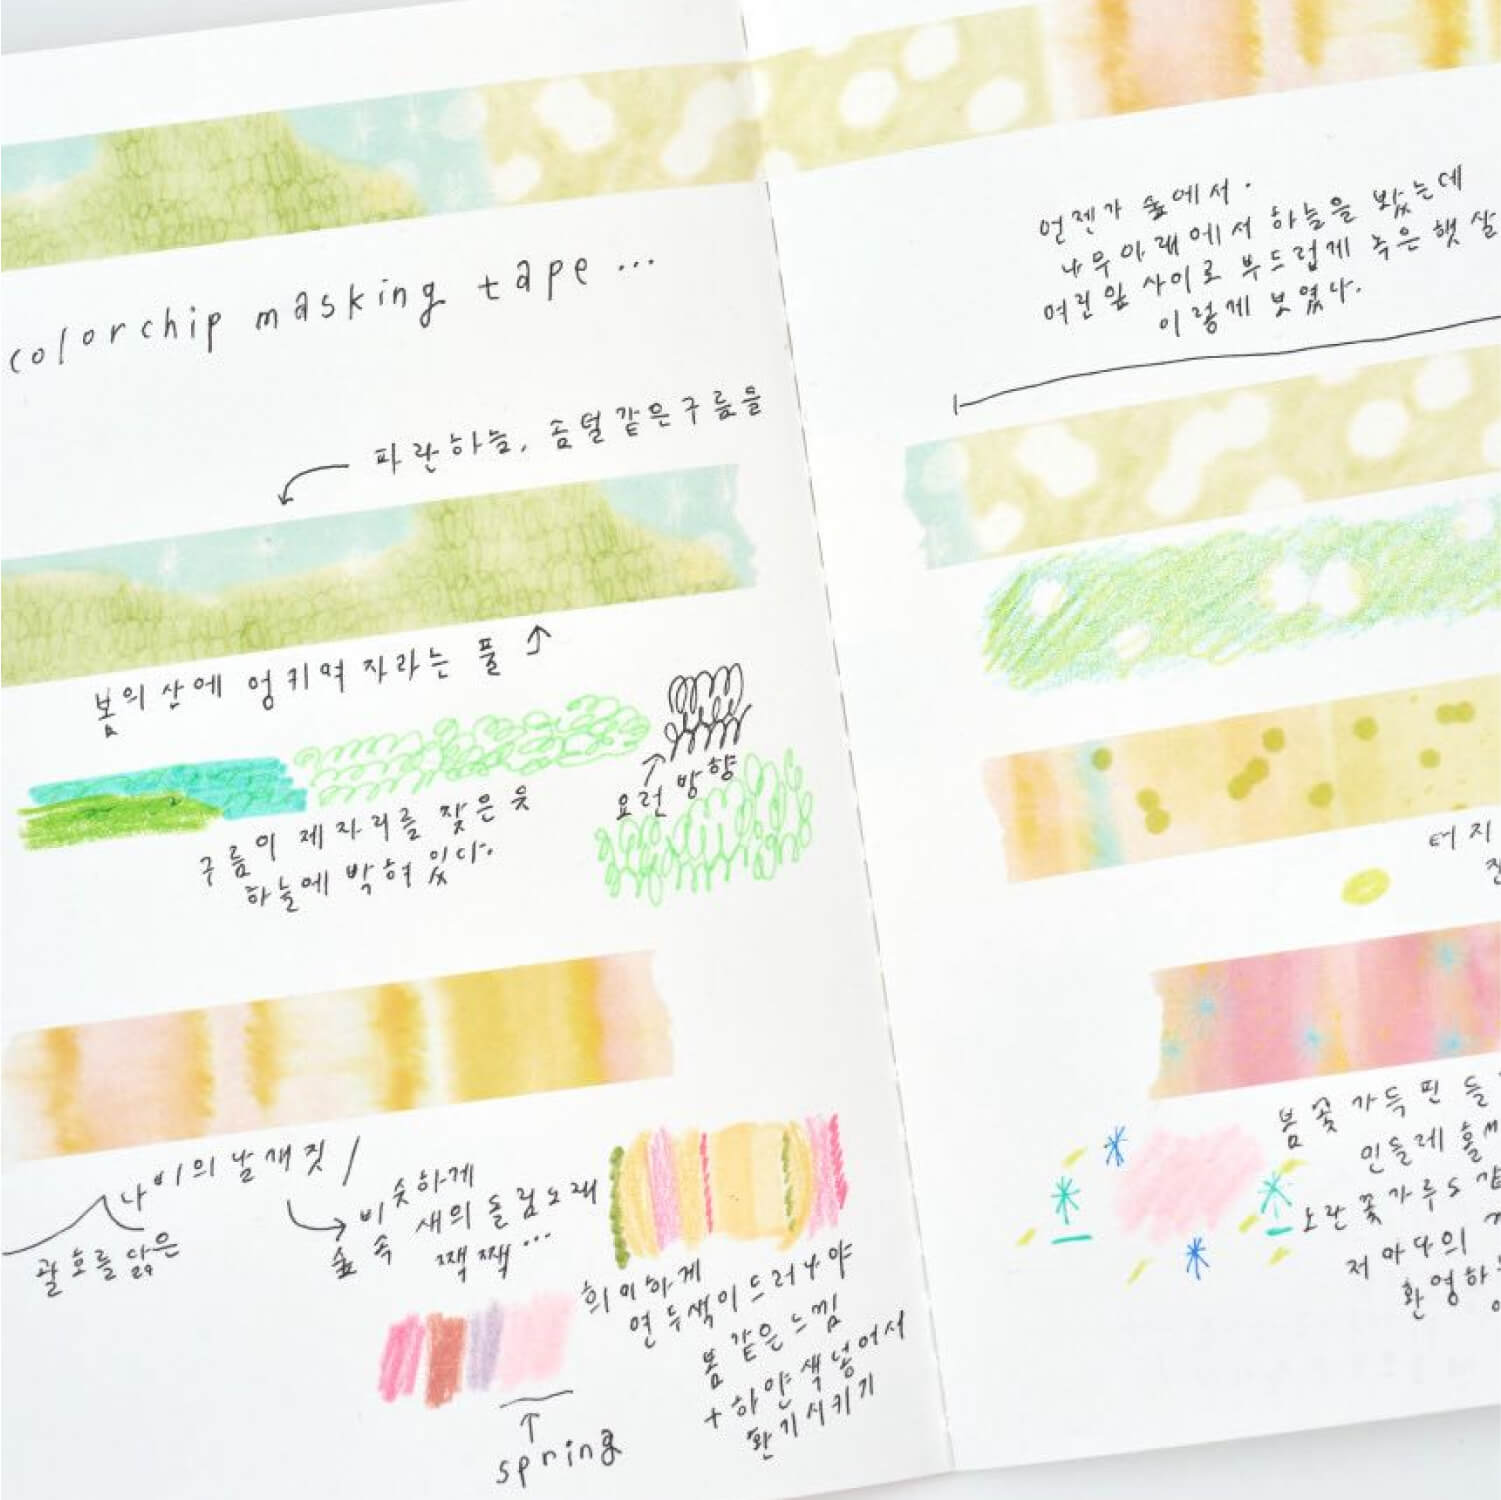 colorchip masking tape ...
파란하늘, 솜털같은구름을
봄의 산에 엉키며 자라는 풀
요런 방향
구름이 제자리를 찾은 듯
하늘에 박혀 있다.
나비의 날개짓 /
괄호를 닮은
비슷하게
새의 돌림노래
숲 속 짹짹...
희미하게
연두색이 드러나야
봄 같은 느낌
+ 하얀색 넣어서
환기시키기
spring
언젠가 숲에서.
나무아래에서 하늘을 봤는데
여린잎 사이로 부드럽게 녹은 햇살
이렇게 보였다.
터지
봄꽃 가득핀 들
민들레 홀씨
노란꽃가루도
저마다의
환영하